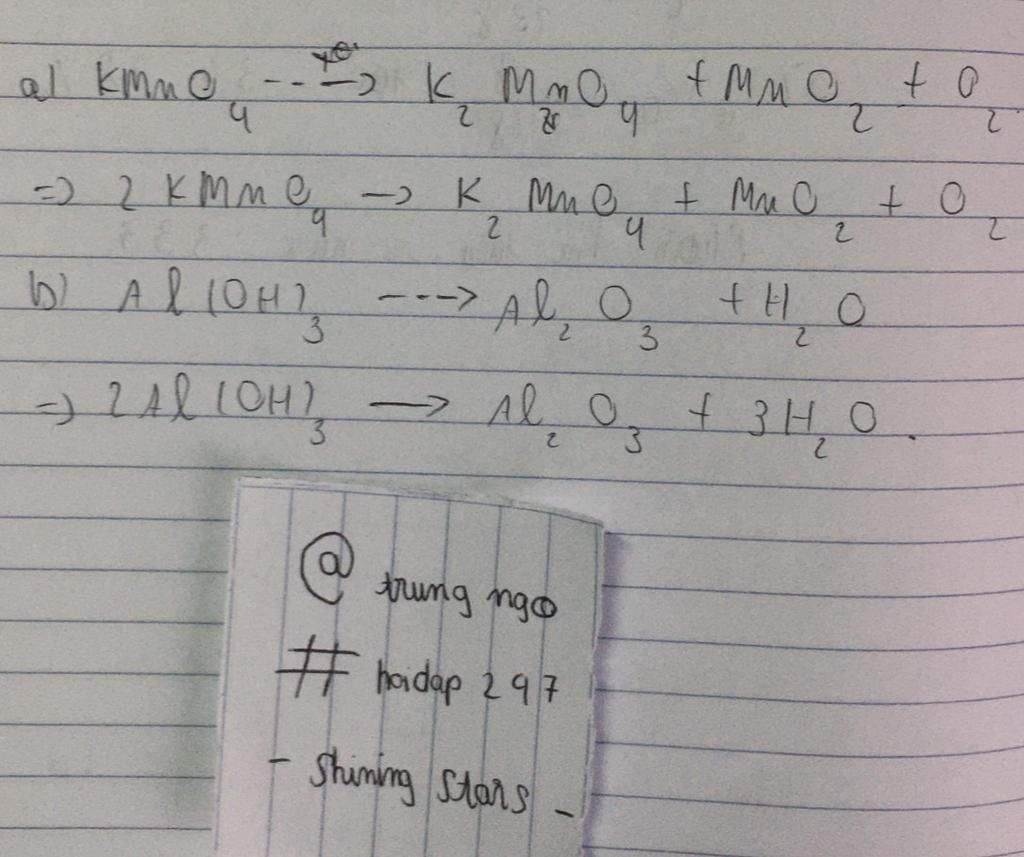 a) KMnO₄ --t°--> K₂MnO₄ + MnO₂ + O₂
=> 2KMnO₄ -> K₂MnO₄ + MnO₂ + O₂
b) Al(OH)₃ ---> Al₂O₃ + H₂O
=> 2Al(OH)₃ -> Al₂O₃ + 3H₂O.
@ trung ngo
# hoidap 297
- Shining stars -